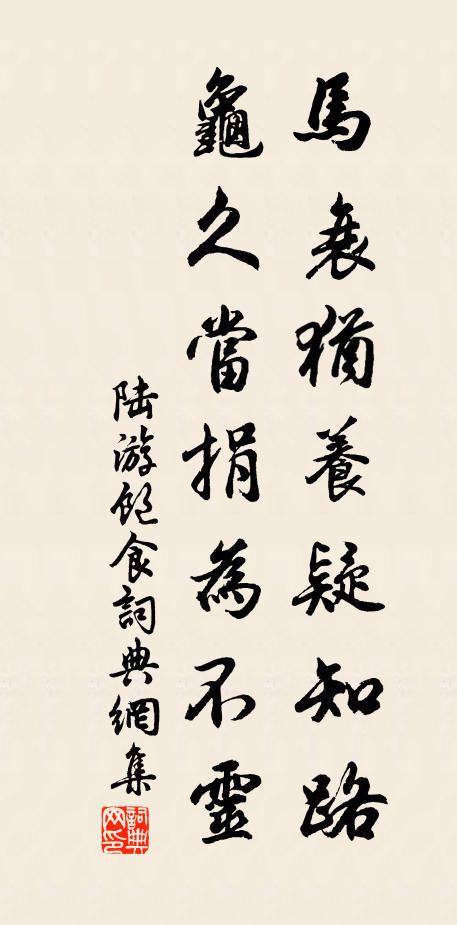 馬衰猶養疑知路
龜久當捐為不靈
陸游飽食詞典網集
詞典網印